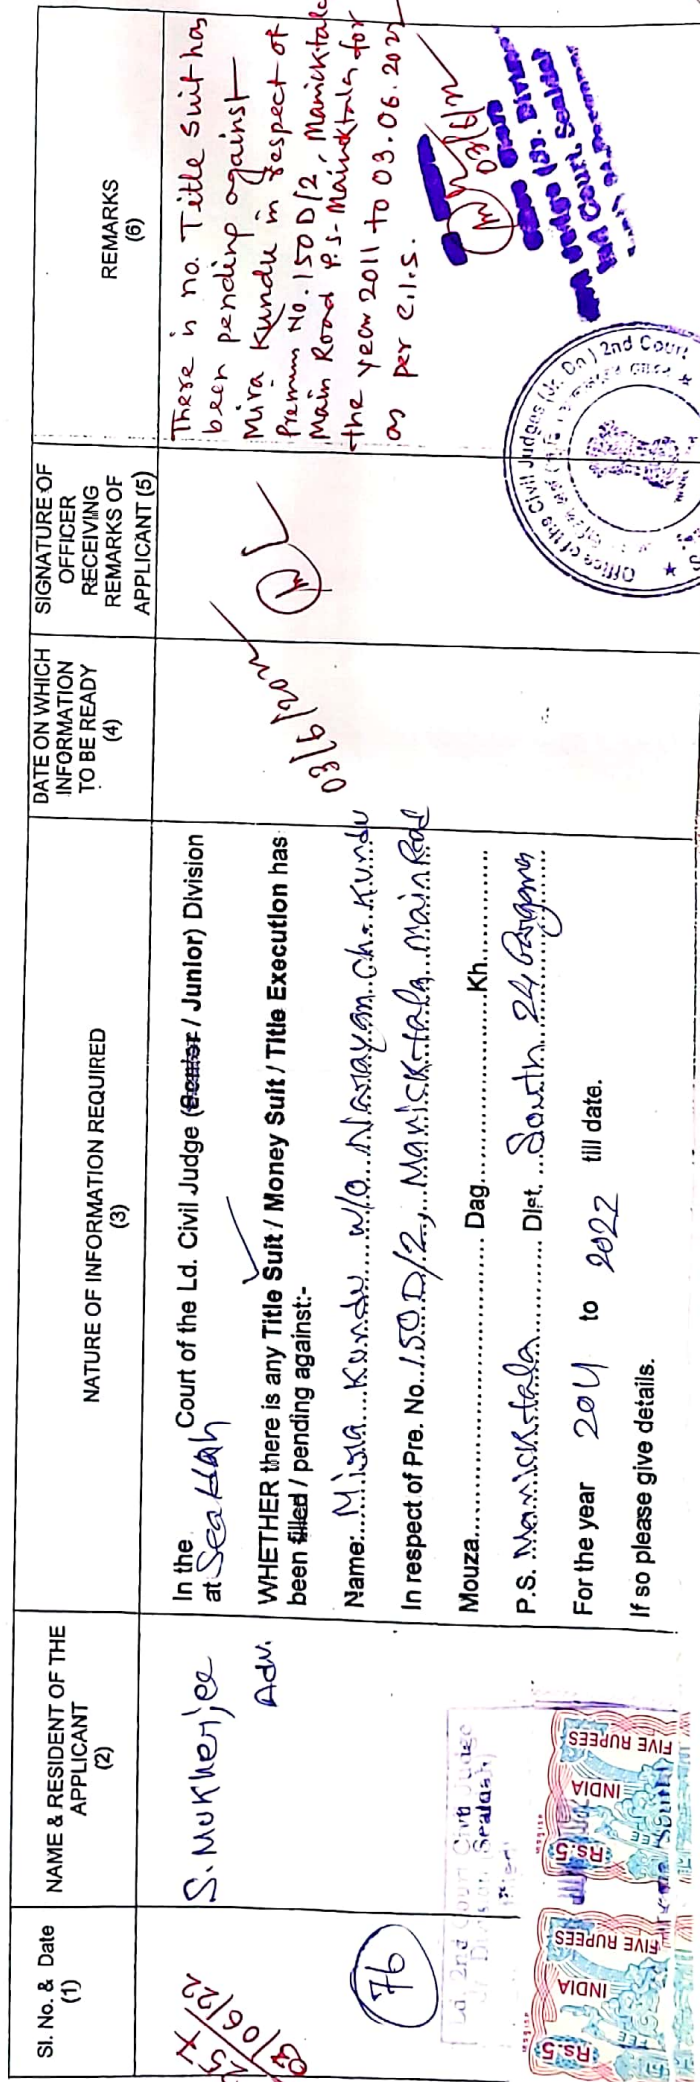 Sl. No. & Date
(1)
NAME & RESIDENT OF THE
APPLICANT
(2)
NATURE OF INFORMATION REQUIRED
(3)
DATE ON WHICH
INFORMATION
TO BE READY
(4)
SIGNATURE OF
OFFICER
RECEIVING
REMARKS OF
APPLICANT (5)
REMARKS
(6)
257
03/06/22
76
S. Mukherjee
Adv.
Ld. 2nd Court Civil Judge
Jr. Division Sealdah
Filed
Rs.5
INDIA
FIVE RUPEES
Rs.5
INDIA
FEE
FIVE RUPEES
In the Court of the Ld. Civil Judge (Senior / Junior) Division
at Sealdah
WHETHER there is any Title Suit / Money Suit / Title Execution has
been filed / pending against:-
Name: Mira Kundu w/o Narayan Ch. Kundu
In respect of Pre. No. 150 D/2, Manicktala Main Road
Mouza.................... Dag....................Kh....................
P.S. Manicktala Dist. South 24 Parganas
For the year 2011 to 2022 till date.
If so please give details.
03/6/2022
There is no Title Suit has
been pending against
Mira Kundu in respect of
Premises No. 150 D/2, Manicktala
Main Road P.S- Manicktala for
the year 2011 to 03.06.2022
as per C.I.S.
03/6/22
2nd Court Sealdah
Office of the Civil Judges (Jr. Dn.) 2nd Court